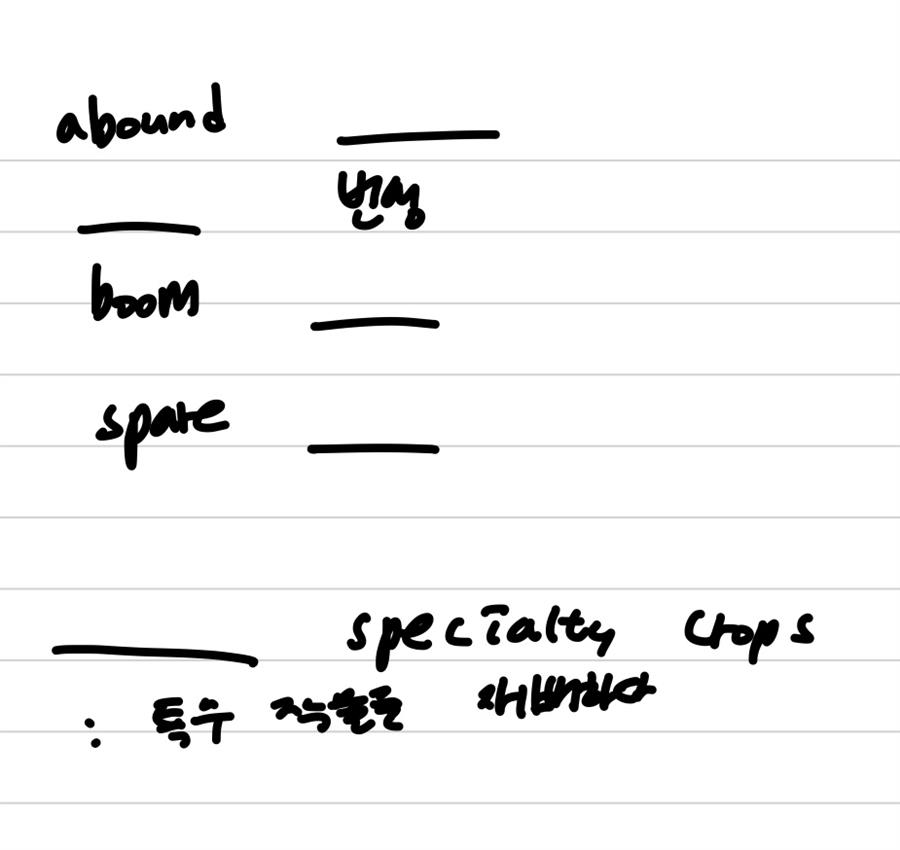 abound
번성
boom
spare
specialty crops
: 특수 작물을 재배하다